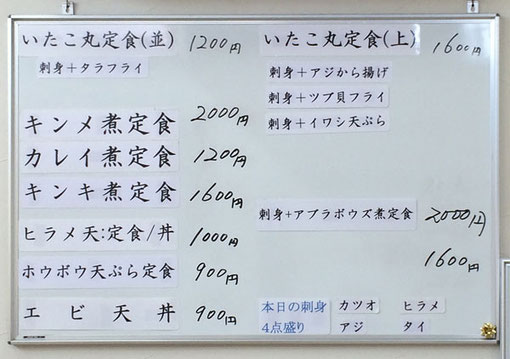 いたこ丸定食(並) 1200円
刺身＋タラフライ
キンメ煮定食 2000円
カレイ煮定食 1200円
キンキ煮定食 1600円
ヒラメ天:定食/丼 1000円
ホウボウ天ぷら定食 900円
エビ天丼 900円
いたこ丸定食(上) 1600円
刺身＋アジから揚げ
刺身＋ツブ貝フライ
刺身＋イワシ天ぷら
刺身+アブラボウズ煮定食 2000円
1600円
本日の刺身 カツオ ヒラメ
4点盛り アジ タイ